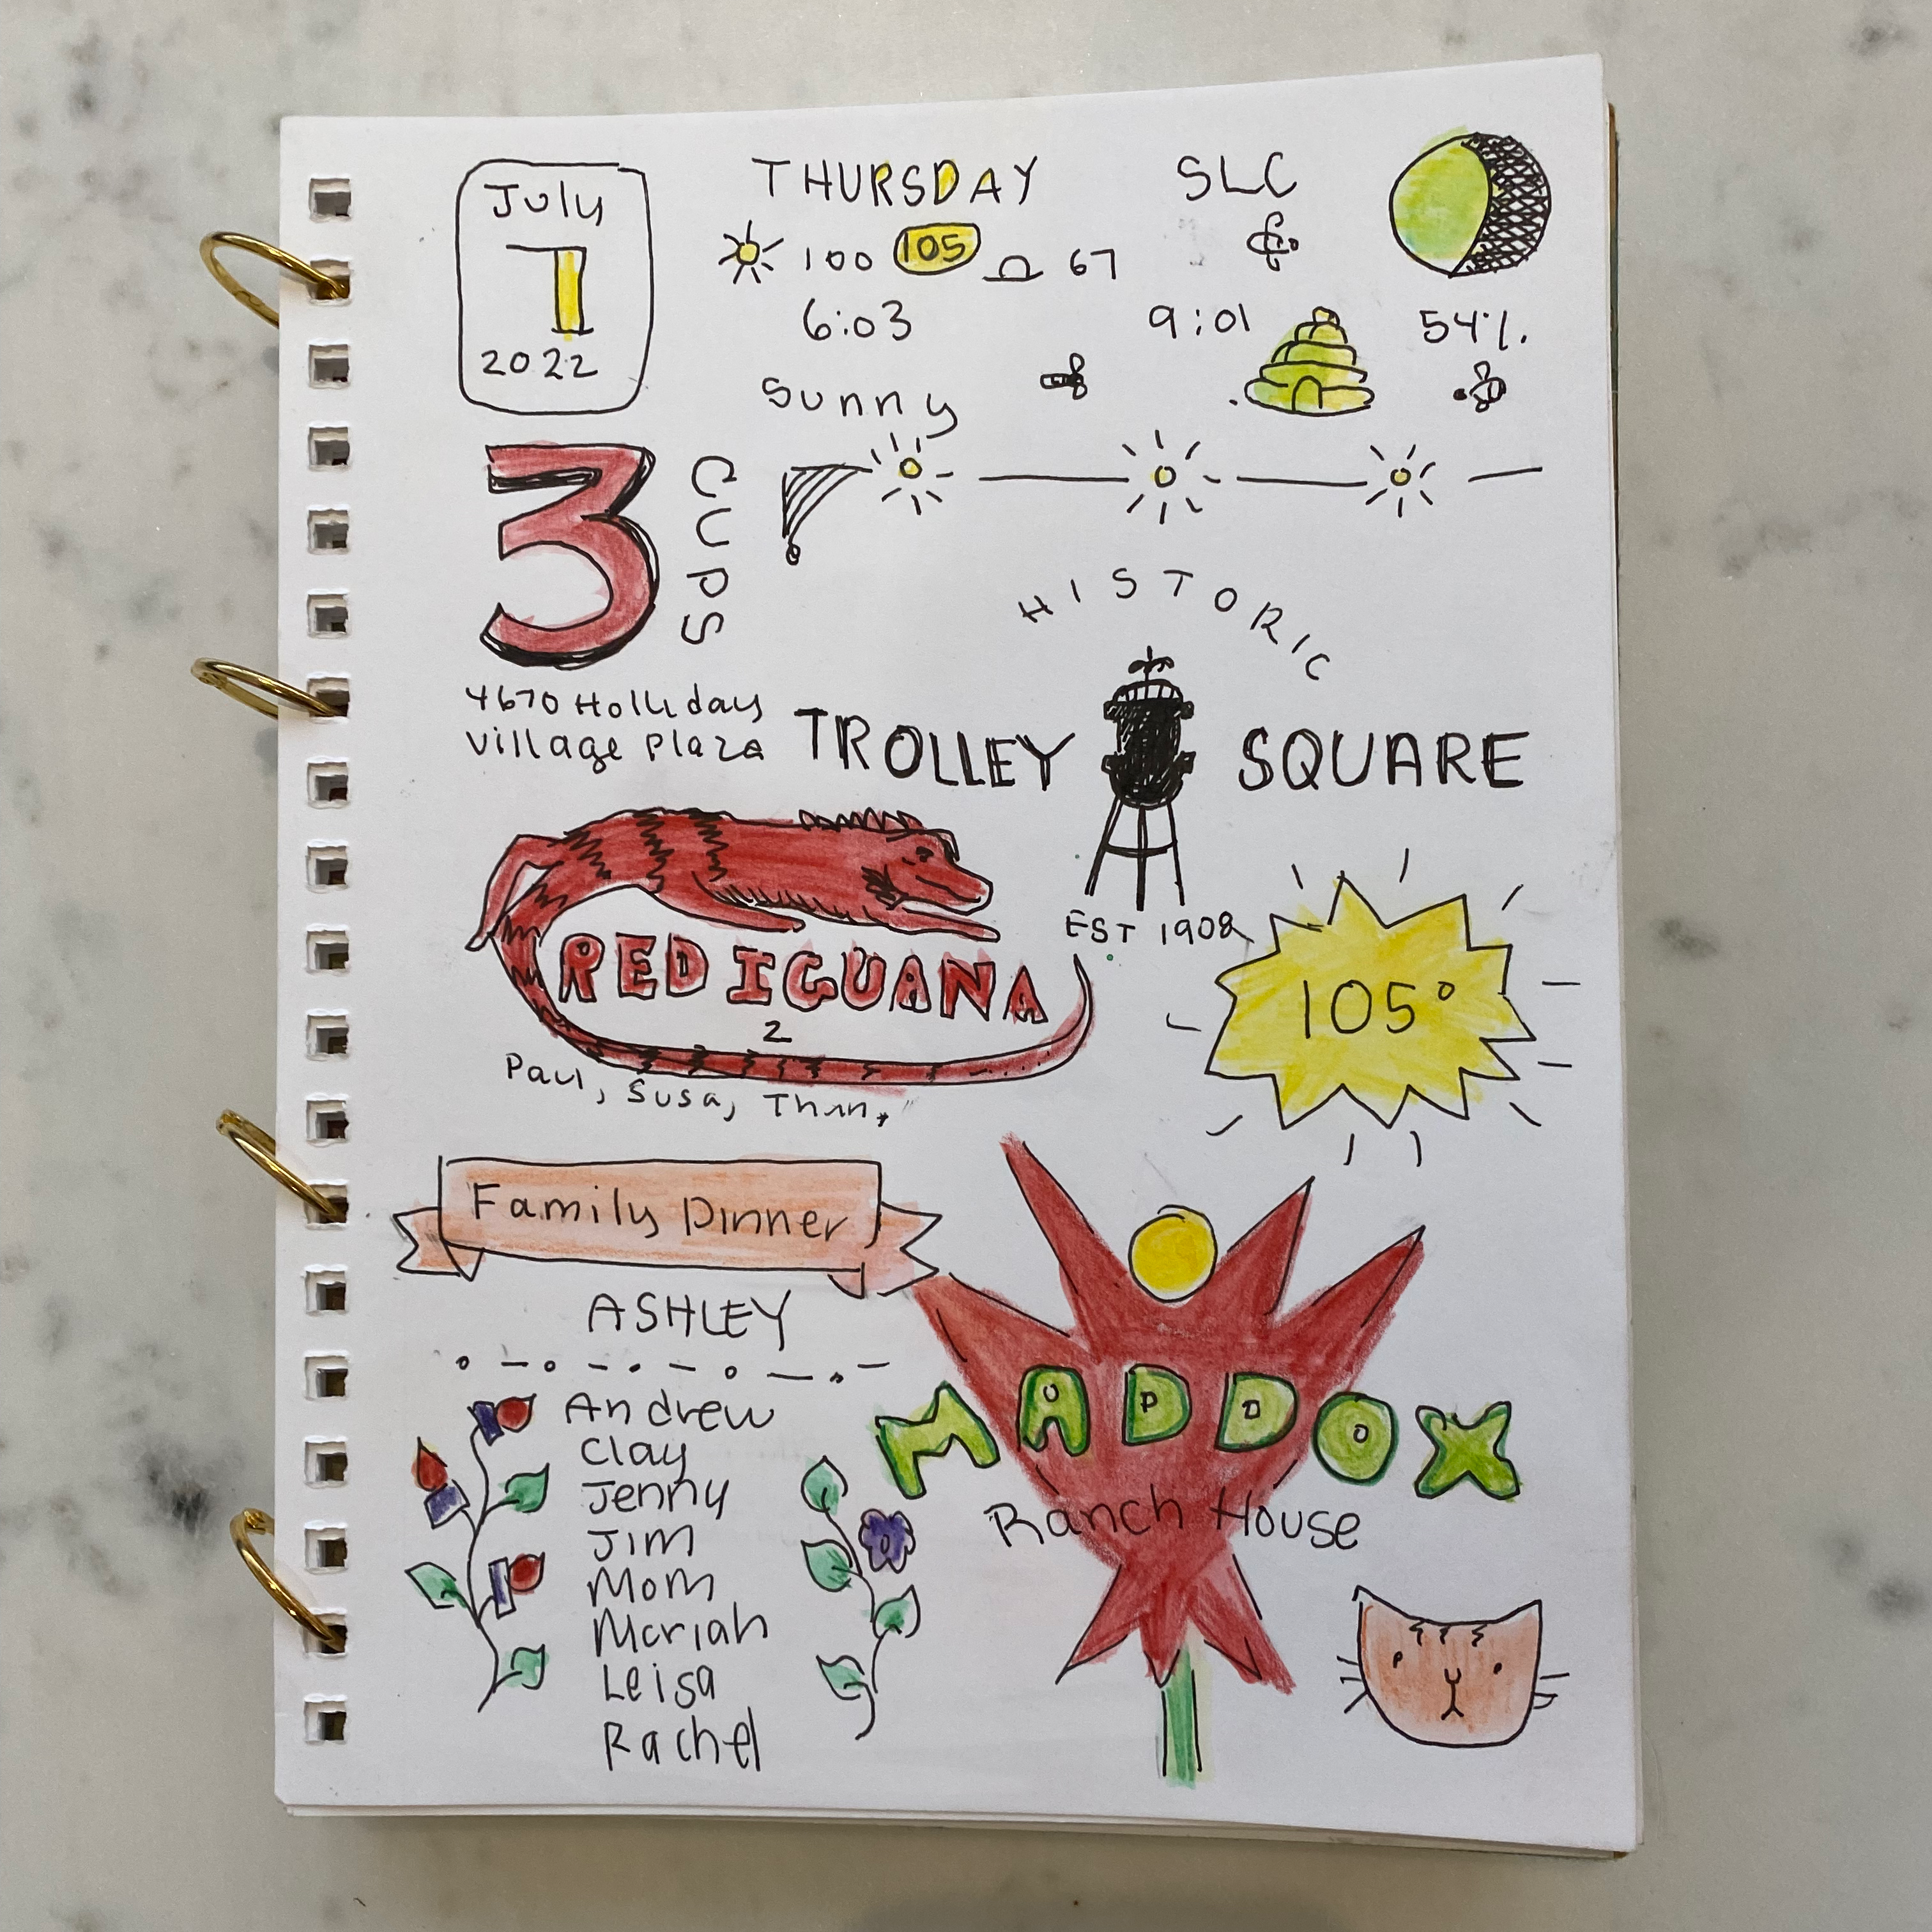 July
7
2022
THURSDAY
100 105 67
6:03
Sunny
SLC
9:01
54%.
3
CUPS
4670 Holliday
Village Plaza
HISTORIC
TROLLEY SQUARE
EST 1908
RED IGUANA
2
Paul, Susa,
105°
Family Dinner
ASHLEY
Andrew
Clay
Jenny
Jim
Mom
Mariah
Leisa
Rachel
MADDOX
Ranch House